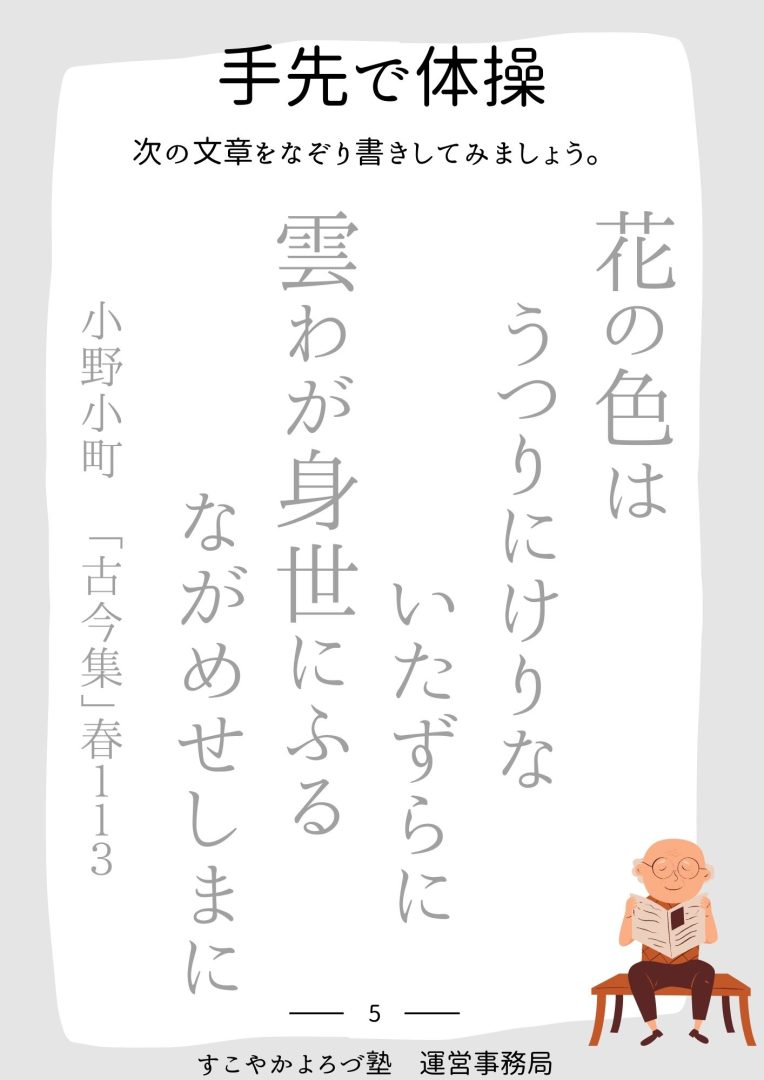 手先で体操
次の文章をなぞり書きしてみましょう。
花の色は
うつりにけりな
いたずらに
雲わが身世にふる
ながめせしまに
小野小町　「古今集」春113
5
すこやかよろづ塾　運営事務局